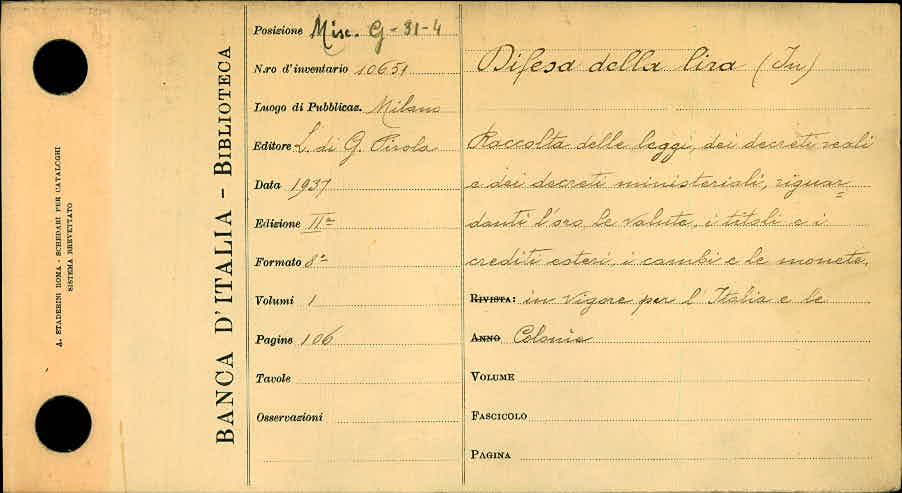 A. STADERINI ROMA - SCHEDARI PER CATALOGHI
SISTEMA BREVETTATO
BANCA D'ITALIA - BIBLIOTECA
Posizione Misc. G-31-4
N.ro d'inventario 10651
Luogo di Pubblicaz. Milano
Editore L. di G. Pirola
Data 1937
Edizione IIª
Formato 8°
Volumi 1
Pagine 106
Tavole
Osservazioni
Difesa della lira (In)
Raccolta delle leggi, dei decreti reali
e dei decreti ministeriali, riguar=
danti l'oro, le valute, i titoli e i
crediti esteri, i cambi e le monete,
RIVISTA: in vigore per l'Italia e le
ANNO Colonie
VOLUME
FASCICOLO
PAGINA